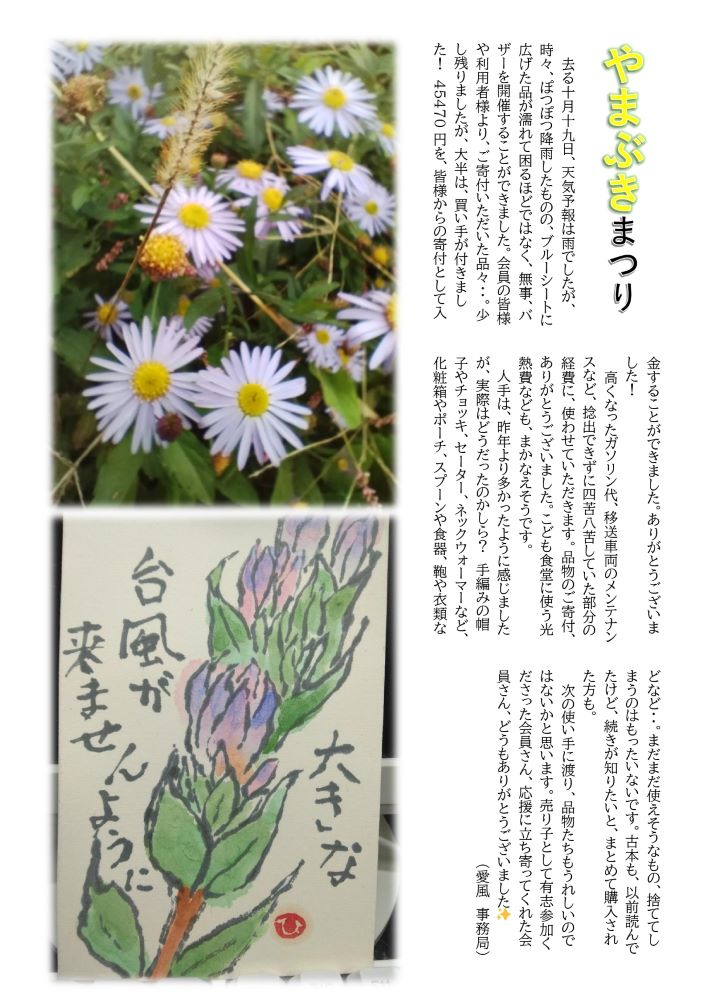 やまぶきまつり
去る十月十九日、天気予報は雨でしたが、
時々、ぽつぽつ降雨したものの、ブルーシートに
広げた品が濡れて困るほどではなく、無事、バ
ザーを開催することができました。会員の皆様
や利用者様より、ご寄付いただいた品々・・。少
し残りましたが、大半は、買い手が付きまし
た！ 45470円を、皆様からの寄付として入
金することができました。ありがとうございま
した！
高くなったガソリン代、移送車両のメンテナン
スなど、捻出できずに四苦八苦していた部分の
経費に、使わせていただきます。品物のご寄付、
ありがとうございました。こども食堂に使う光
熱費なども、まかなえそうです。
人手は、昨年より多かったように感じました
が、実際はどうだったのかしら？ 手編みの帽
子やチョッキ、セーター、ネックウォーマーなど、
化粧箱やポーチ、スプーンや食器、鞄や衣類な
どなど・・。まだまだ使えそうなもの、捨ててし
まうのはもったいないです。古本も、以前読んで
たけど、続きが知りたいと、まとめて購入され
た方も。
次の使い手に渡り、品物たちもうれしいので
はないかと思います。売り子として有志参加く
ださった会員さん、応援に立ち寄ってくれた会
員さん、どうもありがとうございました✨
（愛風 事務局）
大きな
台風が
来ませんように
ひ